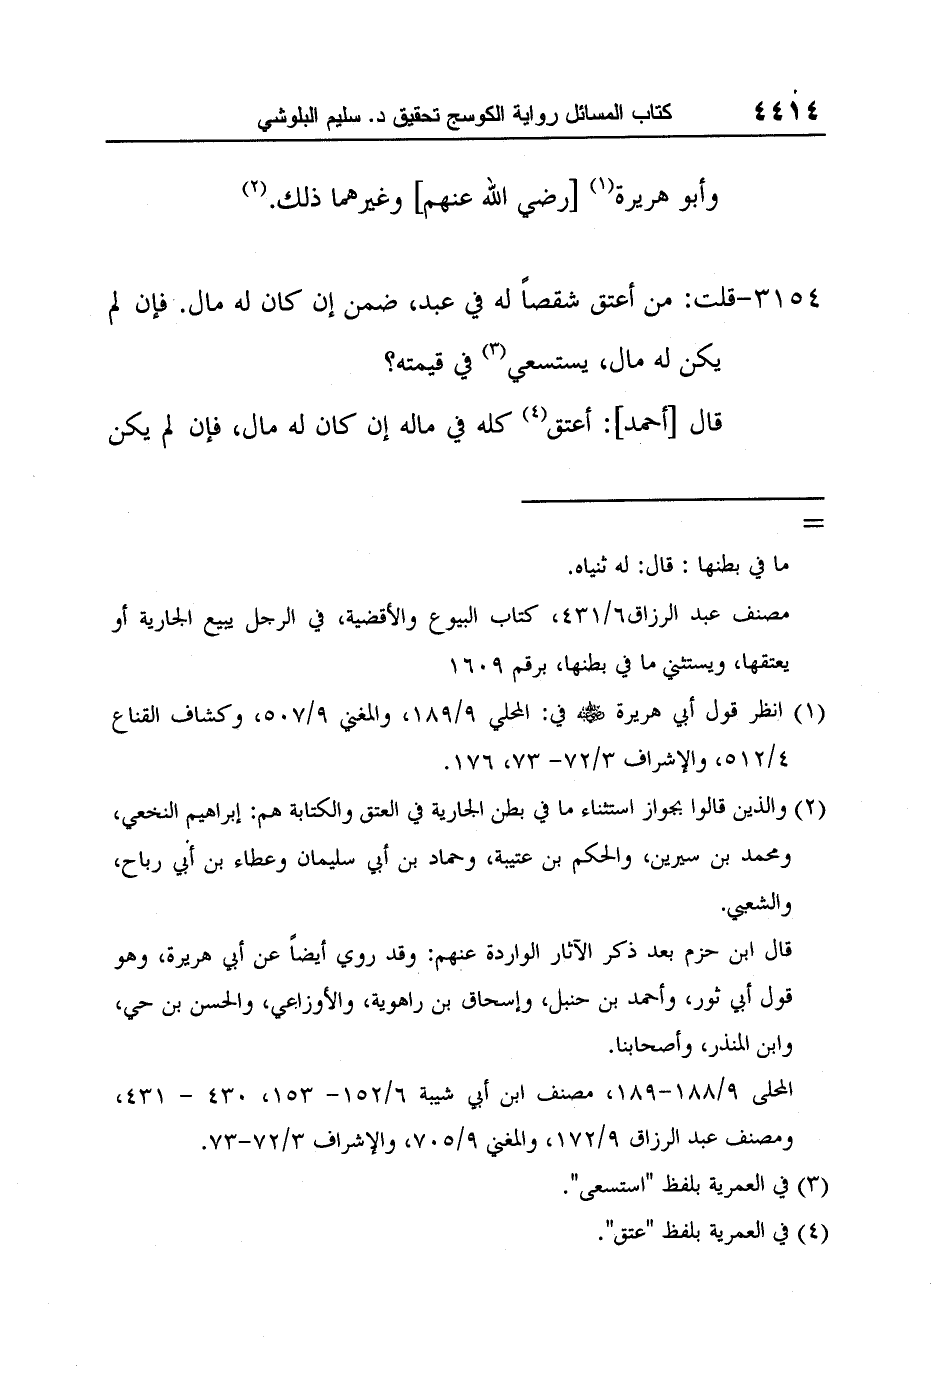 ٤٤١٤ كتاب المسائل رواية الكوسج تحقيق د. سليم البلوشي
وأبو هريرة(١) [رضي الله عنهم] وغيرهما ذلك.(٢)
٣١٥٤-قلت: من أعتق شقصاً له في عبد، ضمن إن كان له مال. فإن لم
يكن له مال، يستسعي(٣) في قيمته؟
قال [أحمد]: أعتق(٤) كله في ماله إن كان له مال، فإن لم يكن
=
ما في بطنها : قال: له ثنياه.
مصنف عبد الرزاق٤٣١/٦، كتاب البيوع والأقضية، في الرجل يبيع الجارية أو
يعتقها، ويستثني ما في بطنها، برقم ١٦٠٩
(١) انظر قول أبي هريرة ﷺ في: المحلي ١٨٩/٩، والمغني ٥٠٧/٩، وكشاف القناع
٥١٢/٤، والإشراف ٧٢/٣- ٧٣، ١٧٦.
(٢) والذين قالوا بجواز استثناء ما في بطن الجارية في العتق والكتابة هم: إبراهيم النخعي،
ومحمد بن سيرين، والحكم بن عتيبة، وحماد بن أبي سليمان وعطاء بن أبي رباح،
والشعبي.
قال ابن حزم بعد ذكر الآثار الواردة عنهم: وقد روي أيضاً عن أبي هريرة، وهو
قول أبي ثور، وأحمد بن حنبل، وإسحاق بن راهوية، والأوزاعي، والحسن بن حي،
وابن المنذر، وأصحابنا.
المحلى ١٨٨/٩-١٨٩، مصنف ابن أبي شيبة ١٥٢/٦- ١٥٣، ٤٣٠ - ٤٣١،
ومصنف عبد الرزاق ١٧٢/٩، والمغني ٧٠٥/٩، والإشراف ٧٢/٣-٧٣.
(٣) في العمرية بلفظ "استسعى".
(٤) في العمرية بلفظ "عتق".